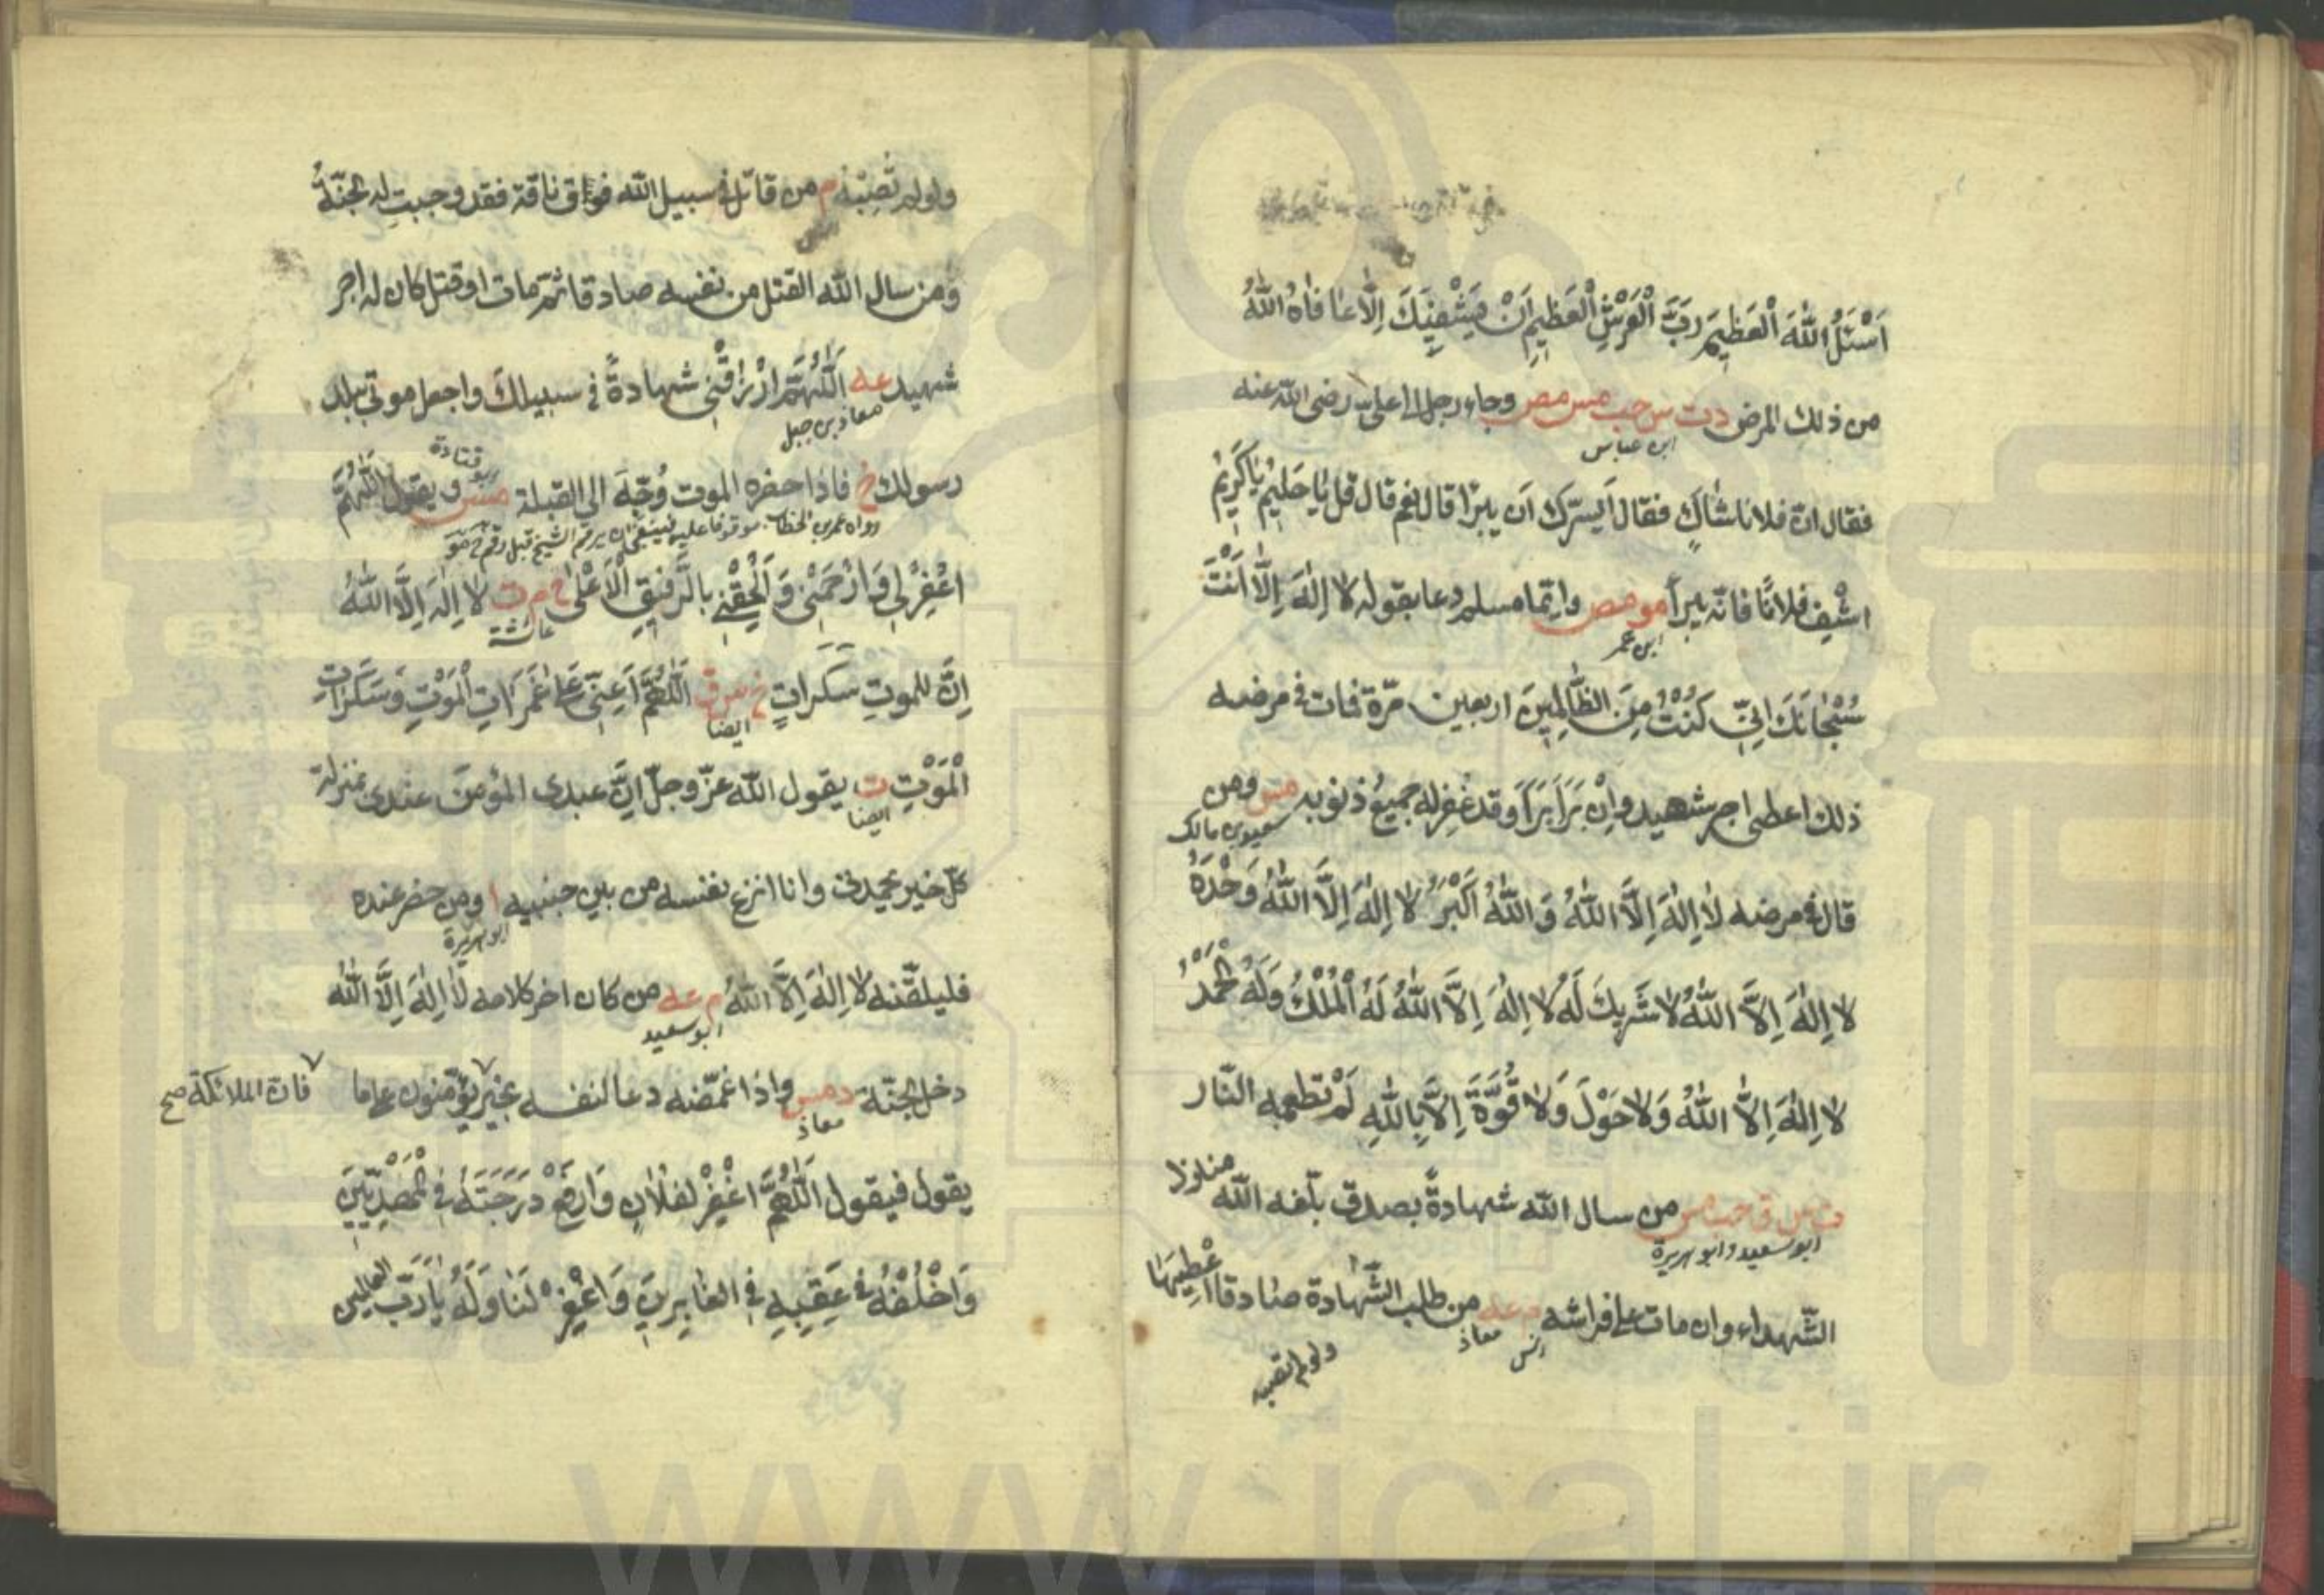 اَسْئَلُ اللّٰهَ الْعَظِيْمَ رَبَّ الْعَرْشِ الْعَظِيْمِ اَنْ يَشْفِيَكَ اِلَّا عافاه اللّٰهُ
من ذلك المرض دت س حب مس مص وجاء رجل الى علىّ رضى اللّه عنه
ابن عباس
فقال انّ فلانا شاكٍ فقال اَيسرّك اَن يبرَا قال نعم قال قل يَا حَلِيْمُ يَا كَرِيْمُ
اشْفِ فلانًا فانّه يبرأ مو مص وايّما مسلم دعا بقوله لا اِلٰهَ اِلَّا اَنْتَ
ابن عمر
سُبْحَانَكَ اِنِّي كُنْتُ مِنَ الظَّالِمِيْنَ اربعين مرّة فمات فى مرضه
ذلك اعطى اجر شهيد وان بَرَأ بَرَأ وقد غُفِرله جميعُ ذنوبه مس ومن
سعد بن مالك
قال فى مرضه لا اِلٰهَ اِلَّا اللّٰهُ وَ اللّٰهُ اَكْبَرُ لا اِلٰهَ اِلَّا اللّٰهُ وَحْدَهُ
لا اِلٰهَ اِلَّا اللّٰهُ لا شَرِيْكَ لَهُ لا اِلٰهَ اِلَّا اللّٰهُ لَهُ الْمُلْكُ وَلَهُ الْحَمْدُ
لا اِلٰهَ اِلَّا اللّٰهُ وَلا حَوْلَ وَلا قُوَّةَ اِلَّا بِاللّٰهِ لَمْ تطعمه النّار
ت س ق حب مس من سال اللّه شهادةً بصدق بلّغه اللّه منازل
ابو سعيد وابو هريرة
الشّهداء وان مات على فراشه م عه من طلب الشّهادة صادقا اُعْطِيَهَا
انس معاذ
ولو لم تصبه
ولو لم تُصِبْهُ م من قاتل فى سبيل اللّه فواق ناقة فقد وجبت له الجنّةُ
انس
ومن سال اللّه القتل من نفسه صادقا ثمّ مات او قتل كان له اجر
شهيد عه اَللّٰهُمَّ ارْزُقْنِي شهادةً فى سبيلك واجعل موتى ببلد
معاذ بن جبل
رسولك خ فاذا حضره الموت وُجِّهَ الى القبلة مس ويقول اَللّٰهُمَّ
ابو قتادة
رواه عمر بن الخطاب موقوفا عليه فينبغى ان يرقم الشيخ قبل رقم خ مو
اغْفِرْ لِي وَارْحَمْنِي وَاَلْحِقْنِي بالرَّفِيْقِ الْاَعْلٰى خ م ت لا اِلٰهَ اِلَّا اللّٰهُ
عائشة
اِنَّ للموتِ سكراتٍ خ س ق اَللّٰهُمَّ اَعِنِّي عَلى غَمَرَاتِ الْمَوْتِ وَسَكَرَاتِ
ايضا
الْمَوْتِ ت يقول اللّه عزّ وجلّ اِنَّ عبدى المؤمنَ عندى بمنزلة
ايضا
كلّ خير يحمدنى وانا انزع نفسه من بين جنبيه ا ومن حضر عنده
ابو هريرة
فليلقّنه لا اِلٰهَ اِلَّا اللّٰهُ م عه من كان اخر كلامه لا اِلٰهَ اِلَّا اللّٰهُ
ابو سعيد
دخل الجنّة د مس واذا غمّضه دعا لنفسه بخير يؤمّنون على ما
معاذ
فانّ الملائكة صح
يقول فيقول اَللّٰهُمَّ اغْفِرْ لفلانٍ وَارْفَعْ دَرَجَتَهُ فى الْمَهْدِيِّيْنَ
وَاخْلُفْهُ فى عَقِبِهِ فى الغابِرِينَ وَاغْفِرْ لَنَا وَلَهُ يَا رَبَّ العالمين
www.ical.ir